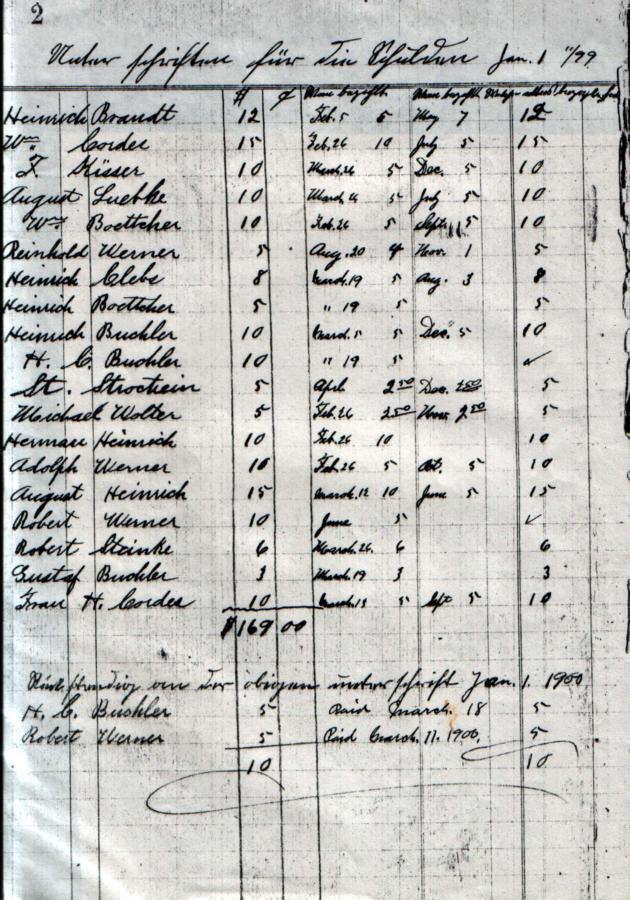 2
Unterschriften für die Schulden Jan. 1 1899
$ ¢ Wann bezahlt. Wann bezahlt.
Heinrich Brandt 12 Feb. 5 5 May 7 12
Wm. Cordes 15 Feb. 26 10 July 5 15
F. Kisser 10 March 26 5 Dec. 5 10
August Luebke 10 March 5 July 5 10
Wm. Boettcher 10 Feb. 26 5 Sept. 5 10
Reinhold Werner 5 Aug. 20 4 Nov. 1 5
Heinrich Clebe 8 March. 19 5 Aug. 3 8
Heinrich Boettcher 5 " 19 5 5
Heinrich Buchler 10 March. 5 5 Dec. 5 10
H. C. Buchler 10 " 19 5 ✓
St. Strochein 5 April 2 50 Dec. 2 50 5
Michael Wolter 5 Feb. 26 2 50 Nov. 2 50 5
Herman Heinrich 10 Feb. 26 10 10
Adolph Werner 10 Feb. 26 5 Oct. 5 10
August Heinrich 15 March. 12 10 June 5 15
Robert Werner 10 June 5 ✓
Robert Steinke 6 March. 26. 6 6
Gustaf Buchler 3 March. 19 3 3
Frau H. Cordes 10 March. 5 Sept 5 10
$169 00
Rückständig von der obigen unterschrift Jan. 1. 1900
H. C. Buchler 5 Paid March. 18 5
Robert Werner 5 Paid March. 11. 1900. 5
10 10